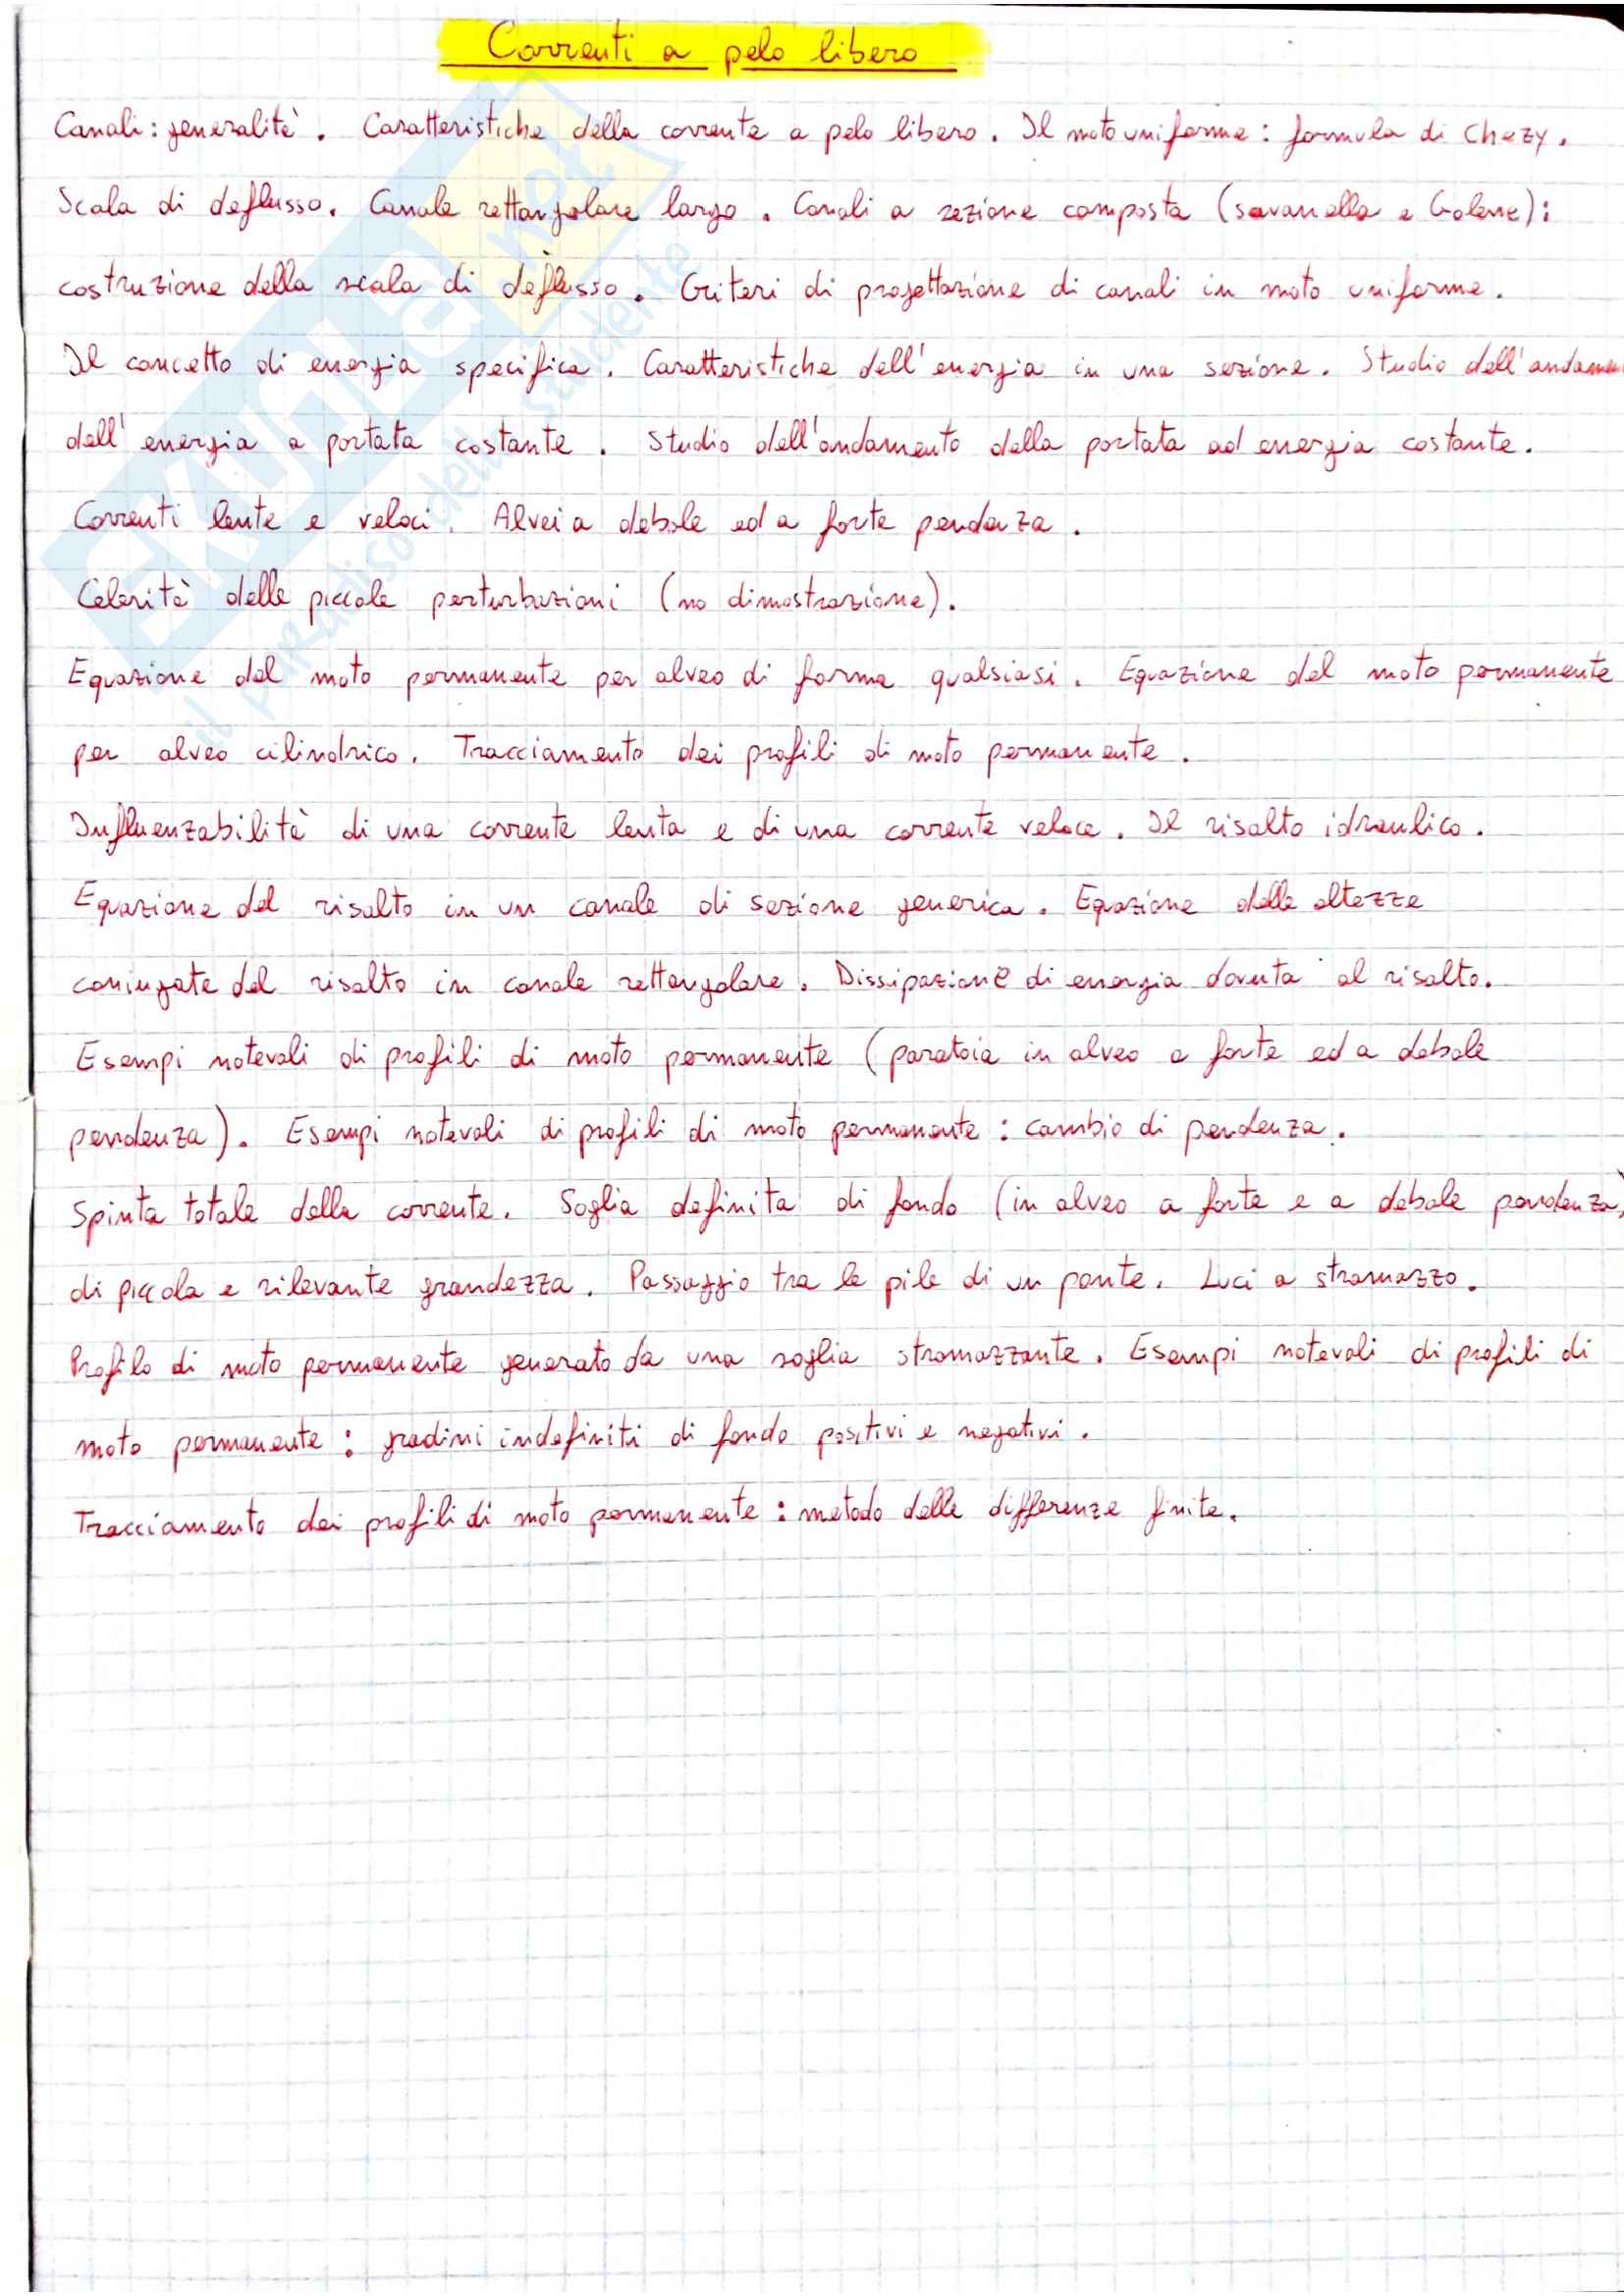 Correnti a pelo libero
Canali: generalità. Caratteristiche della corrente a pelo libero. Il moto uniforme: formula di Chezy.
Scala di deflusso. Canale rettangolare largo. Canali a sezione composta (savanella e Golene):
costruzione della scala di deflusso. Criteri di progettazione di canali in moto uniforme.
Il concetto di energia specifica. Caratteristiche dell'energia in una sezione. Studio dell'andamen
dell'energia a portata costante. Studio dell'andamento della portata ad energia costante.
Correnti lente e veloci. Alvei a debole ed a forte pendenza.
Celerità delle piccole perturbazioni (no dimostrazione).
Equazione del moto permanente per alveo di forma qualsiasi. Equazione del moto permanente
per alveo cilindrico. Tracciamento dei profili di moto permanente.
Influenzabilità di una corrente lenta e di una corrente veloce. Il risalto idraulico.
Equazione del risalto in un canale di sezione generica. Equazione delle altezze
coniugate del risalto in canale rettangolare. Dissipazione di energia dovuta al risalto.
Esempi notevoli di profili di moto permanente (paratoia in alveo a forte ed a debole
pendenza). Esempi notevoli di profili di moto permanente: cambio di pendenza.
Spinta totale della corrente. Soglia definita di fondo (in alveo a forte e a debole pendenza)
di piccola e rilevante grandezza. Passaggio tra le pile di un ponte. Luci a stramazzo.
Profilo di moto permanente generato da una soglia stramazzante. Esempi notevoli di profili di
moto permanente: gradini indefiniti di fondo positivi e negativi.
Tracciamento dei profili di moto permanente: metodo delle differenze finite.
SKUOLA.not
il paradiso dello studente